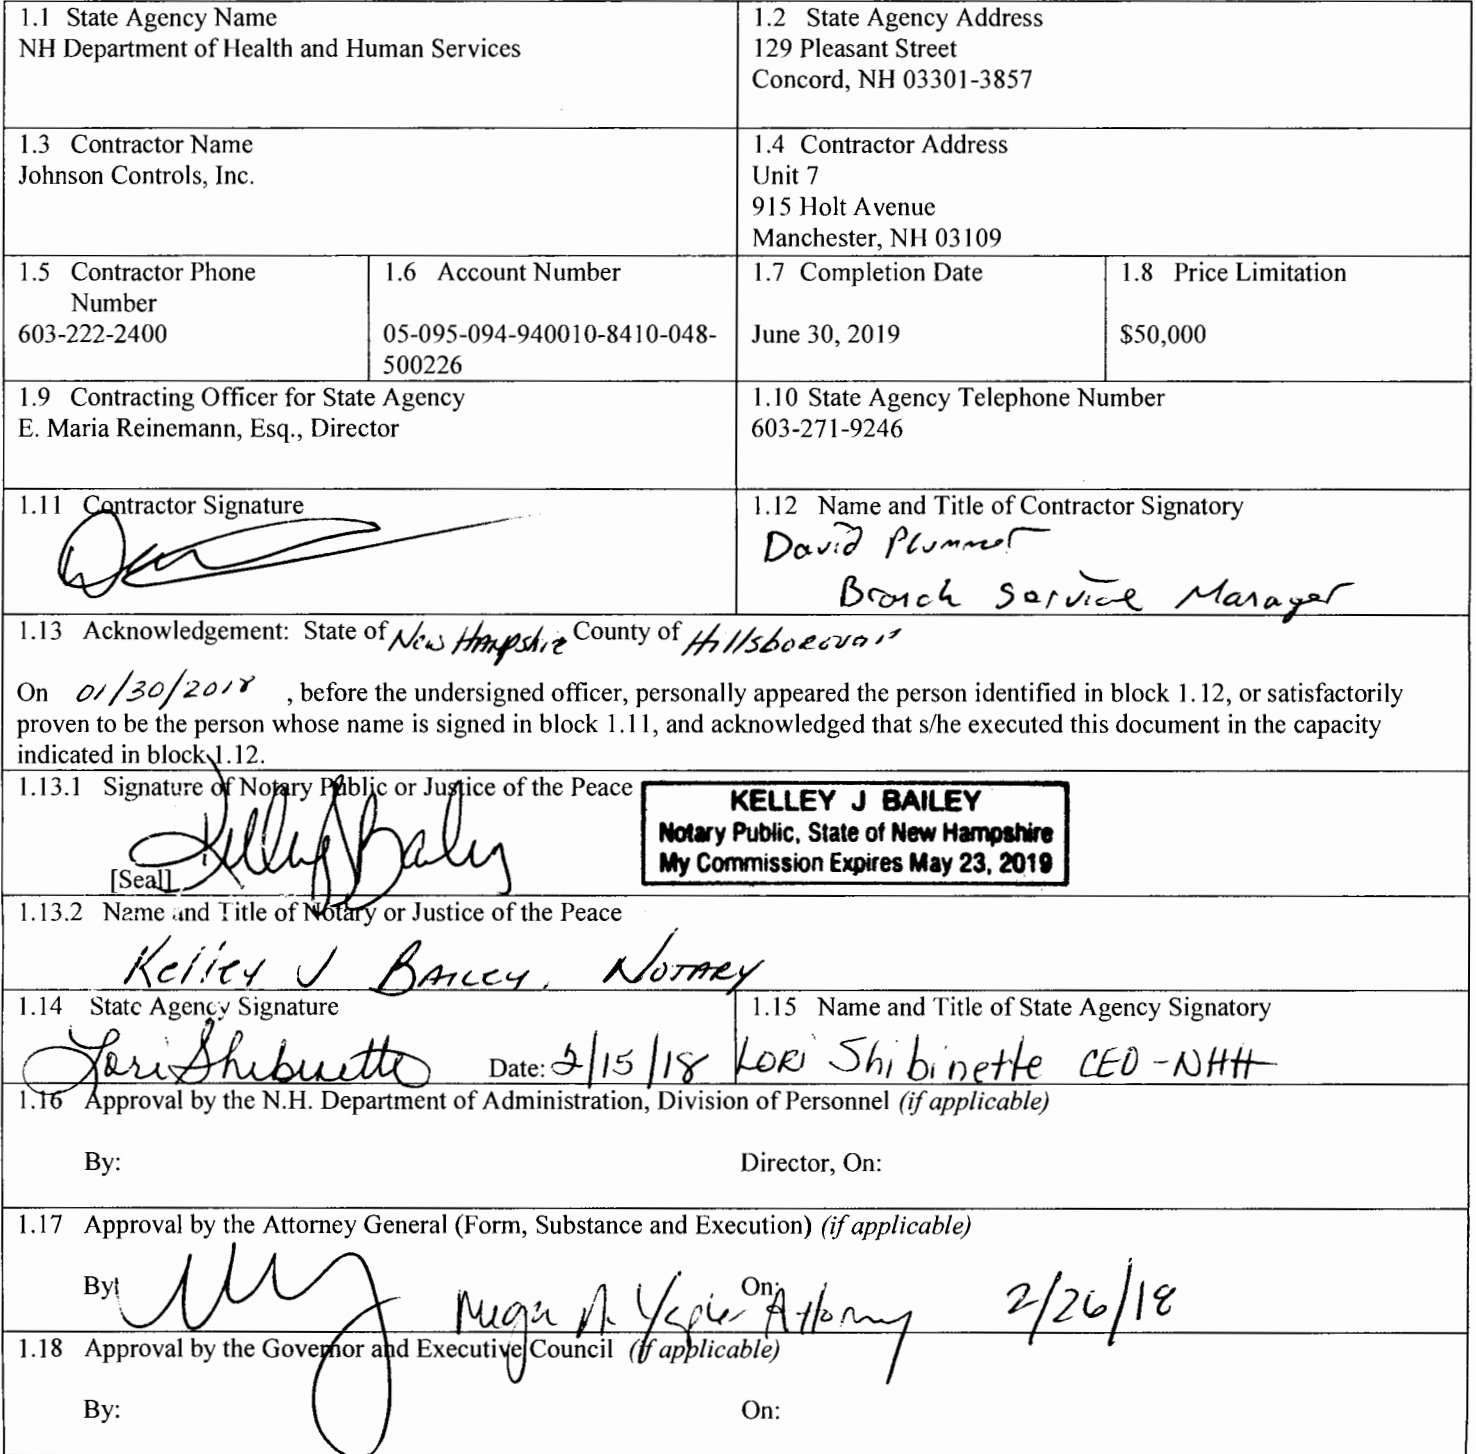 1.1 State Agency Name
NH Department of Health and Human Services
1.2 State Agency Address
129 Pleasant Street
Concord, NH 03301-3857
1.3 Contractor Name
Johnson Controls, Inc.
1.4 Contractor Address
Unit 7
915 Holt Avenue
Manchester, NH 03109
1.5 Contractor Phone
Number
603-222-2400
1.6 Account Number
05-095-094-940010-8410-048-
500226
1.7 Completion Date
June 30, 2019
1.8 Price Limitation
$50,000
1.9 Contracting Officer for State Agency
E. Maria Reinemann, Esq., Director
1.10 State Agency Telephone Number
603-271-9246
1.11 Contractor Signature
1.12 Name and Title of Contractor Signatory
David Plummer
Branch Service Manager
1.13 Acknowledgement: State of New Hampshire County of Hillsborough
On 01/30/2018 , before the undersigned officer, personally appeared the person identified in block 1.12, or satisfactorily
proven to be the person whose name is signed in block 1.11, and acknowledged that s/he executed this document in the capacity
indicated in block 1.12.
1.13.1 Signature of Notary Public or Justice of the Peace
Kelley J Bailey
[Seal]
KELLEY J BAILEY
Notary Public, State of New Hampshire
My Commission Expires May 23, 2019
1.13.2 Name and Title of Notary or Justice of the Peace
Kelley J Bailey, Notary
1.14 State Agency Signature
Lori Shibinette Date: 2/15/18
1.15 Name and Title of State Agency Signatory
Lori Shibinette CEO-NHH
1.16 Approval by the N.H. Department of Administration, Division of Personnel (if applicable)
By: Director, On:
1.17 Approval by the Attorney General (Form, Substance and Execution) (if applicable)
By: On: Attorney 2/26/18
1.18 Approval by the Governor and Executive Council (if applicable)
By: On: